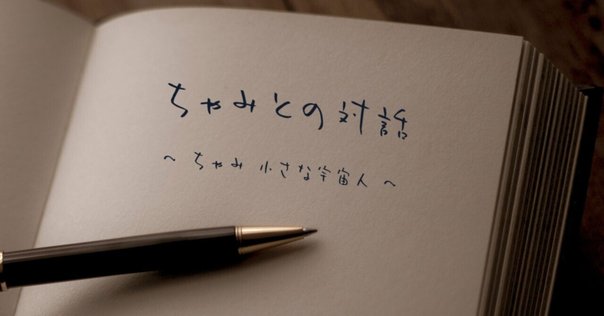 ちゃみとの対話
～ ちゃみ 小さな宇宙人 ～